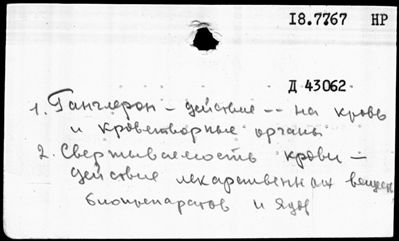 18.7767 НР
Д 43062.
1. Ганглерон - действие -- на кровь
и кроветворные органы
2. Свертываемость крови -
действие лекарственных веществ
биопрепаратов и ядов